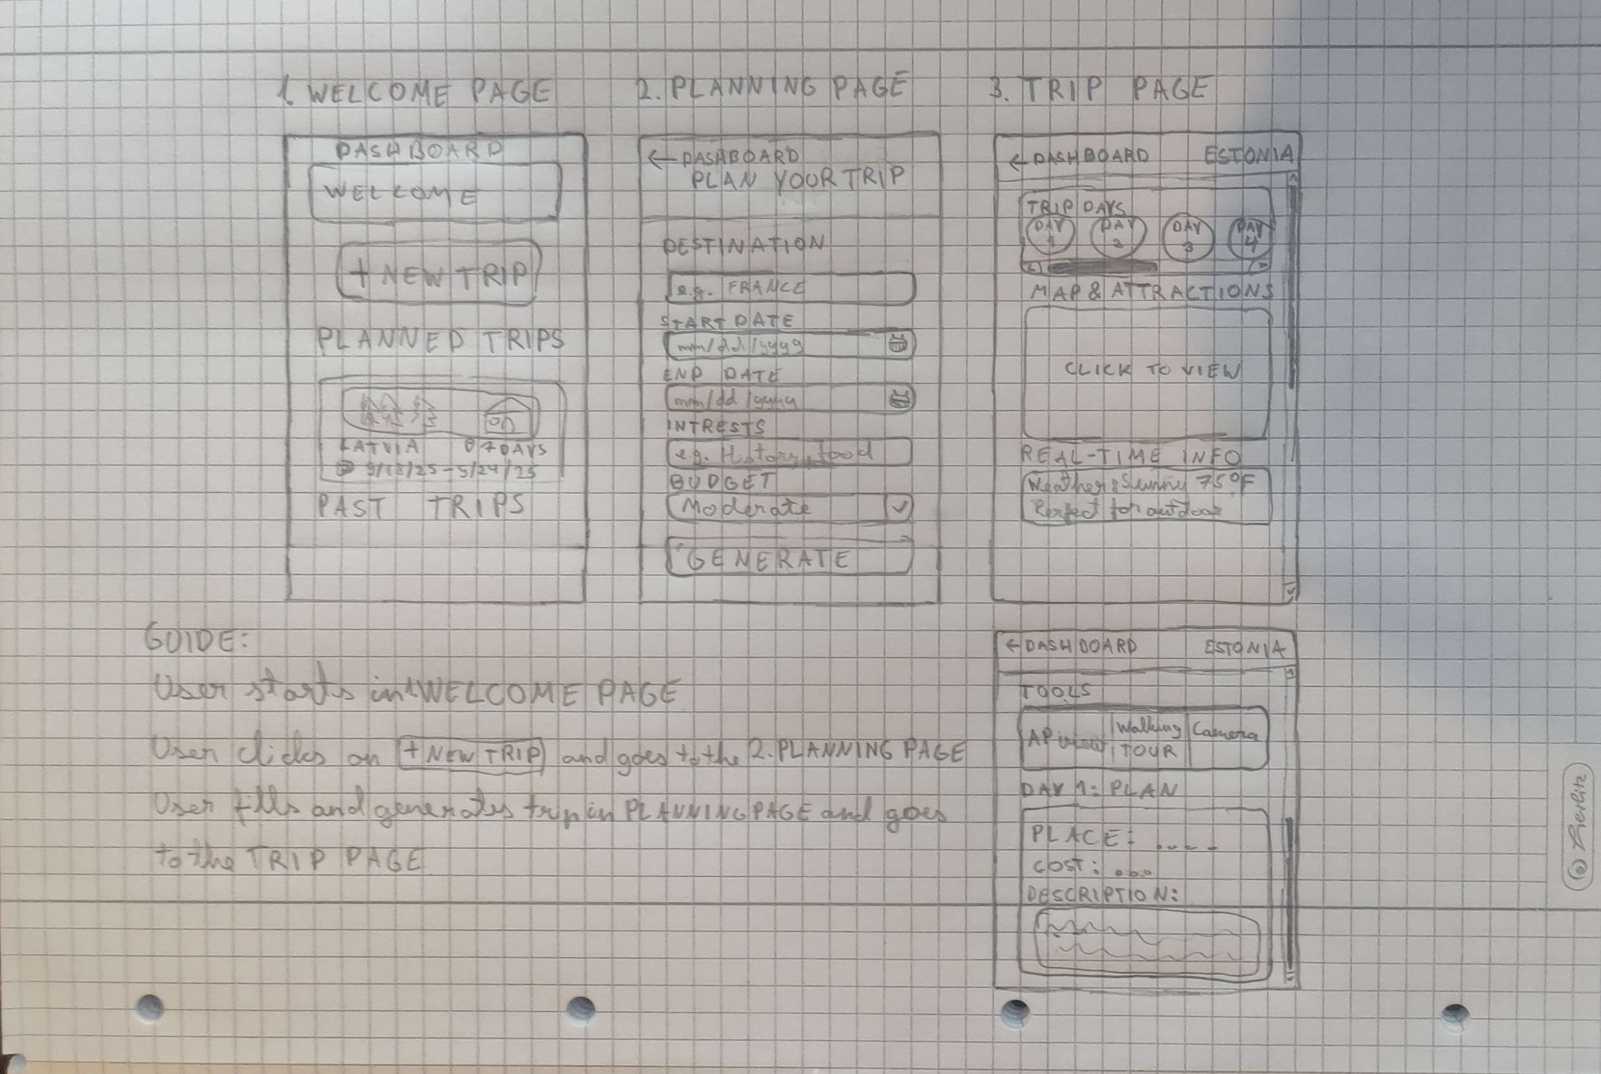 1. WELCOME PAGE
DASHBOARD
WELCOME
+ NEW TRIP
PLANNED TRIPS
LATVIA 07DAYS
9/18/25-9/24/25
PAST TRIPS
2. PLANNING PAGE
← DASHBOARD
PLAN YOUR TRIP
DESTINATION
e.g. FRANCE
START DATE
mm/dd/yyyy
END DATE
mm/dd/yyyy
INTRESTS
e.g. History, food
BUDGET
Moderate
GENERATE
3. TRIP PAGE
← DASHBOARD ESTONIA
TRIP DAYS
DAY 1 DAY 2 DAY 3 DAY 4
MAP & ATTRACTIONS
CLICK TO VIEW
REAL-TIME INFO
Weather: Sunny 75°F
Perfect for outdoor
← DASHBOARD ESTONIA
TOOLS
Walking TOUR
Camera
DAY 1: PLAN
PLACE: ....
COST: ...
DESCRIPTION:
GUIDE:
User starts in 1. WELCOME PAGE
User clicks on + NEW TRIP and goes to the 2. PLANNING PAGE
User fills and generates trip in PLANNING PAGE and goes
to the TRIP PAGE